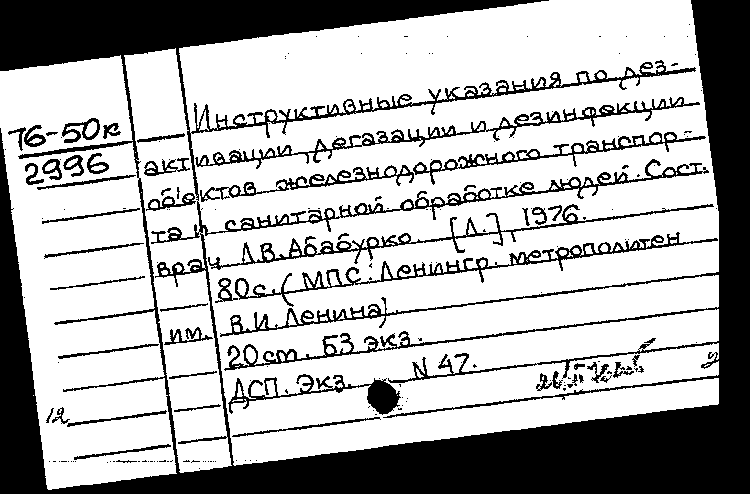 76-50к
2996
Инструктивные указания по дез-
активации, дегазации и дезинфекции
объектов железнодорожного транспор-
та и санитарной обработке людей. Сост.
врач Л.В. Абабурко. [Л.], 1976.
80с. (МПС: Ленингр. метрополитен
им. В.И. Ленина).
20см. БЗ экз.
ДСП. Экз. N 47.
12